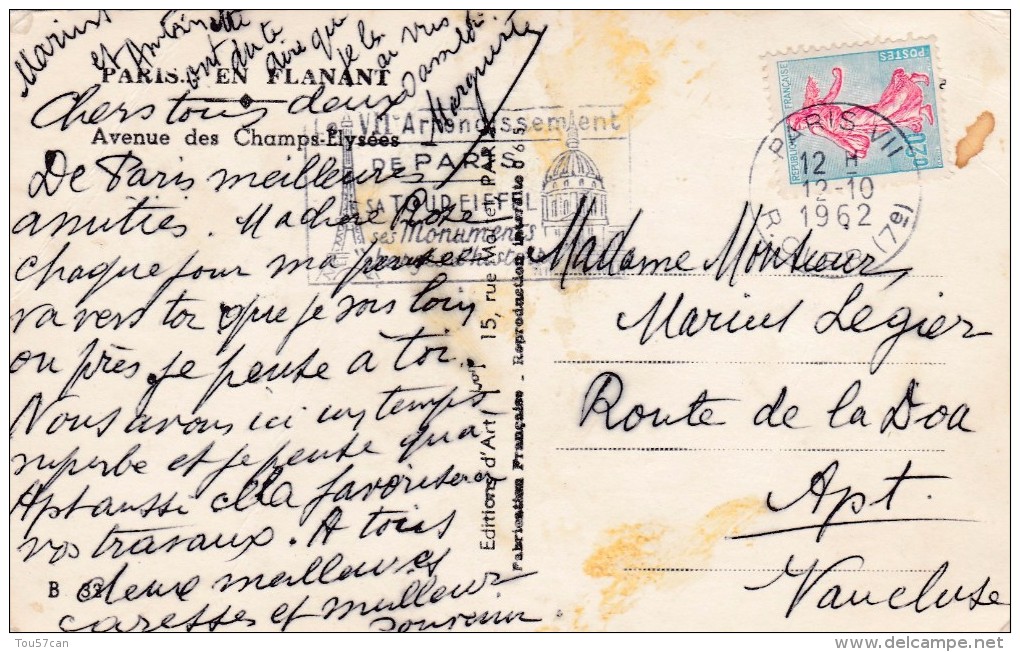 Marius
et Antoinette
ont dû te
dire que
je les
ai vus
samedi
Marguerite
PARIS... EN FLANANT
Avenue des Champs-Elysées
Chers tous deux
De Paris meilleures
amitiés. Ma chère Rose
chaque jour ma pensée
va vers toi que je sois loin
ou près je pense à toi.
Nous avons ici un temps
superbe et je pense qu'à
Apt aussi cela favorisera
vos travaux. A tous
deux meilleures
caresses et meilleur
souvenir
B 32
Editions d'Art
15, rue Martel PARIS
Fabrication Française - Reproduction interdite
Le VIIe Arrondissement
DE PARIS
SA TOUR EIFFEL
ses Monuments
POSTES
REPUBLIQUE FRANÇAISE
0,20
PARIS VII
12 H
12-10
1962
(7e)
Madame Monsieur
Marius Légier
Route de la Doa
Apt.
Vaucluse
Tou57can
www.delcampe.net